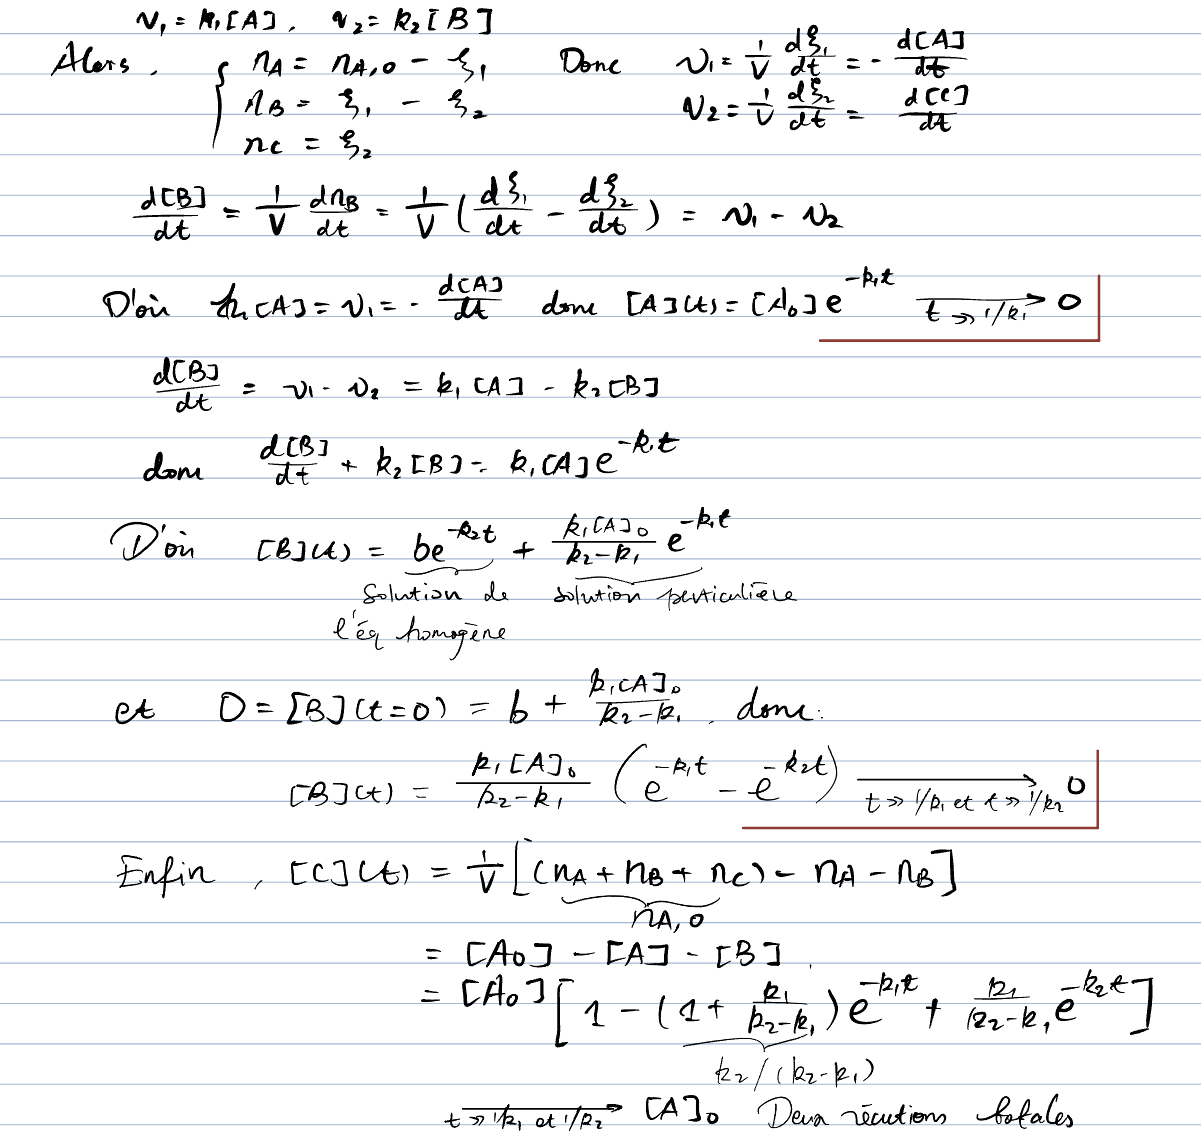 v₁ = k₁[A], v₂ = k₂[B]
Alors, { n_A = n_A,0 - ξ₁ Donc v₁ = 1/V dξ₁/dt = - d[A]/dt
n_B = ξ₁ - ξ₂ v₂ = 1/V dξ₂/dt = d[C]/dt
n_C = ξ₂
d[B]/dt = 1/V dn_B/dt = 1/V (dξ₁/dt - dξ₂/dt) = v₁ - v₂
D'où k₁[A] = v₁ = - d[A]/dt donc [A](t) = [A₀] e^(-k₁t) ⟶ (t ≫ 1/k₁) 0
d[B]/dt = v₁ - v₂ = k₁[A] - k₂[B]
donc d[B]/dt + k₂[B] = k₁[A]e^(-k₁t)
D'où [B](t) = be^(-k₂t) + k₁[A]₀/(k₂-k₁) e^(-k₁t)
solution de solution particulière
l'éq homogène
et 0 = [B](t=0) = b + k₁[A]₀/(k₂-k₁), donc:
[B](t) = k₁[A]₀/(k₂-k₁) (e^(-k₁t) - e^(-k₂t)) ⟶ (t ≫ 1/k₁ et t ≫ 1/k₂) 0
Enfin, [C](t) = 1/V [(n_A + n_B + n_C) - n_A - n_B]
n_A,0
= [A₀] - [A] - [B].
= [A₀][1 - (1 + k₁/(k₂-k₁))e^(-k₁t) + k₁/(k₂-k₁) e^(-k₂t)]
k₂/(k₂-k₁)
⟶ (t ≫ 1/k₁ et 1/k₂) [A]₀ Deux réactions totales